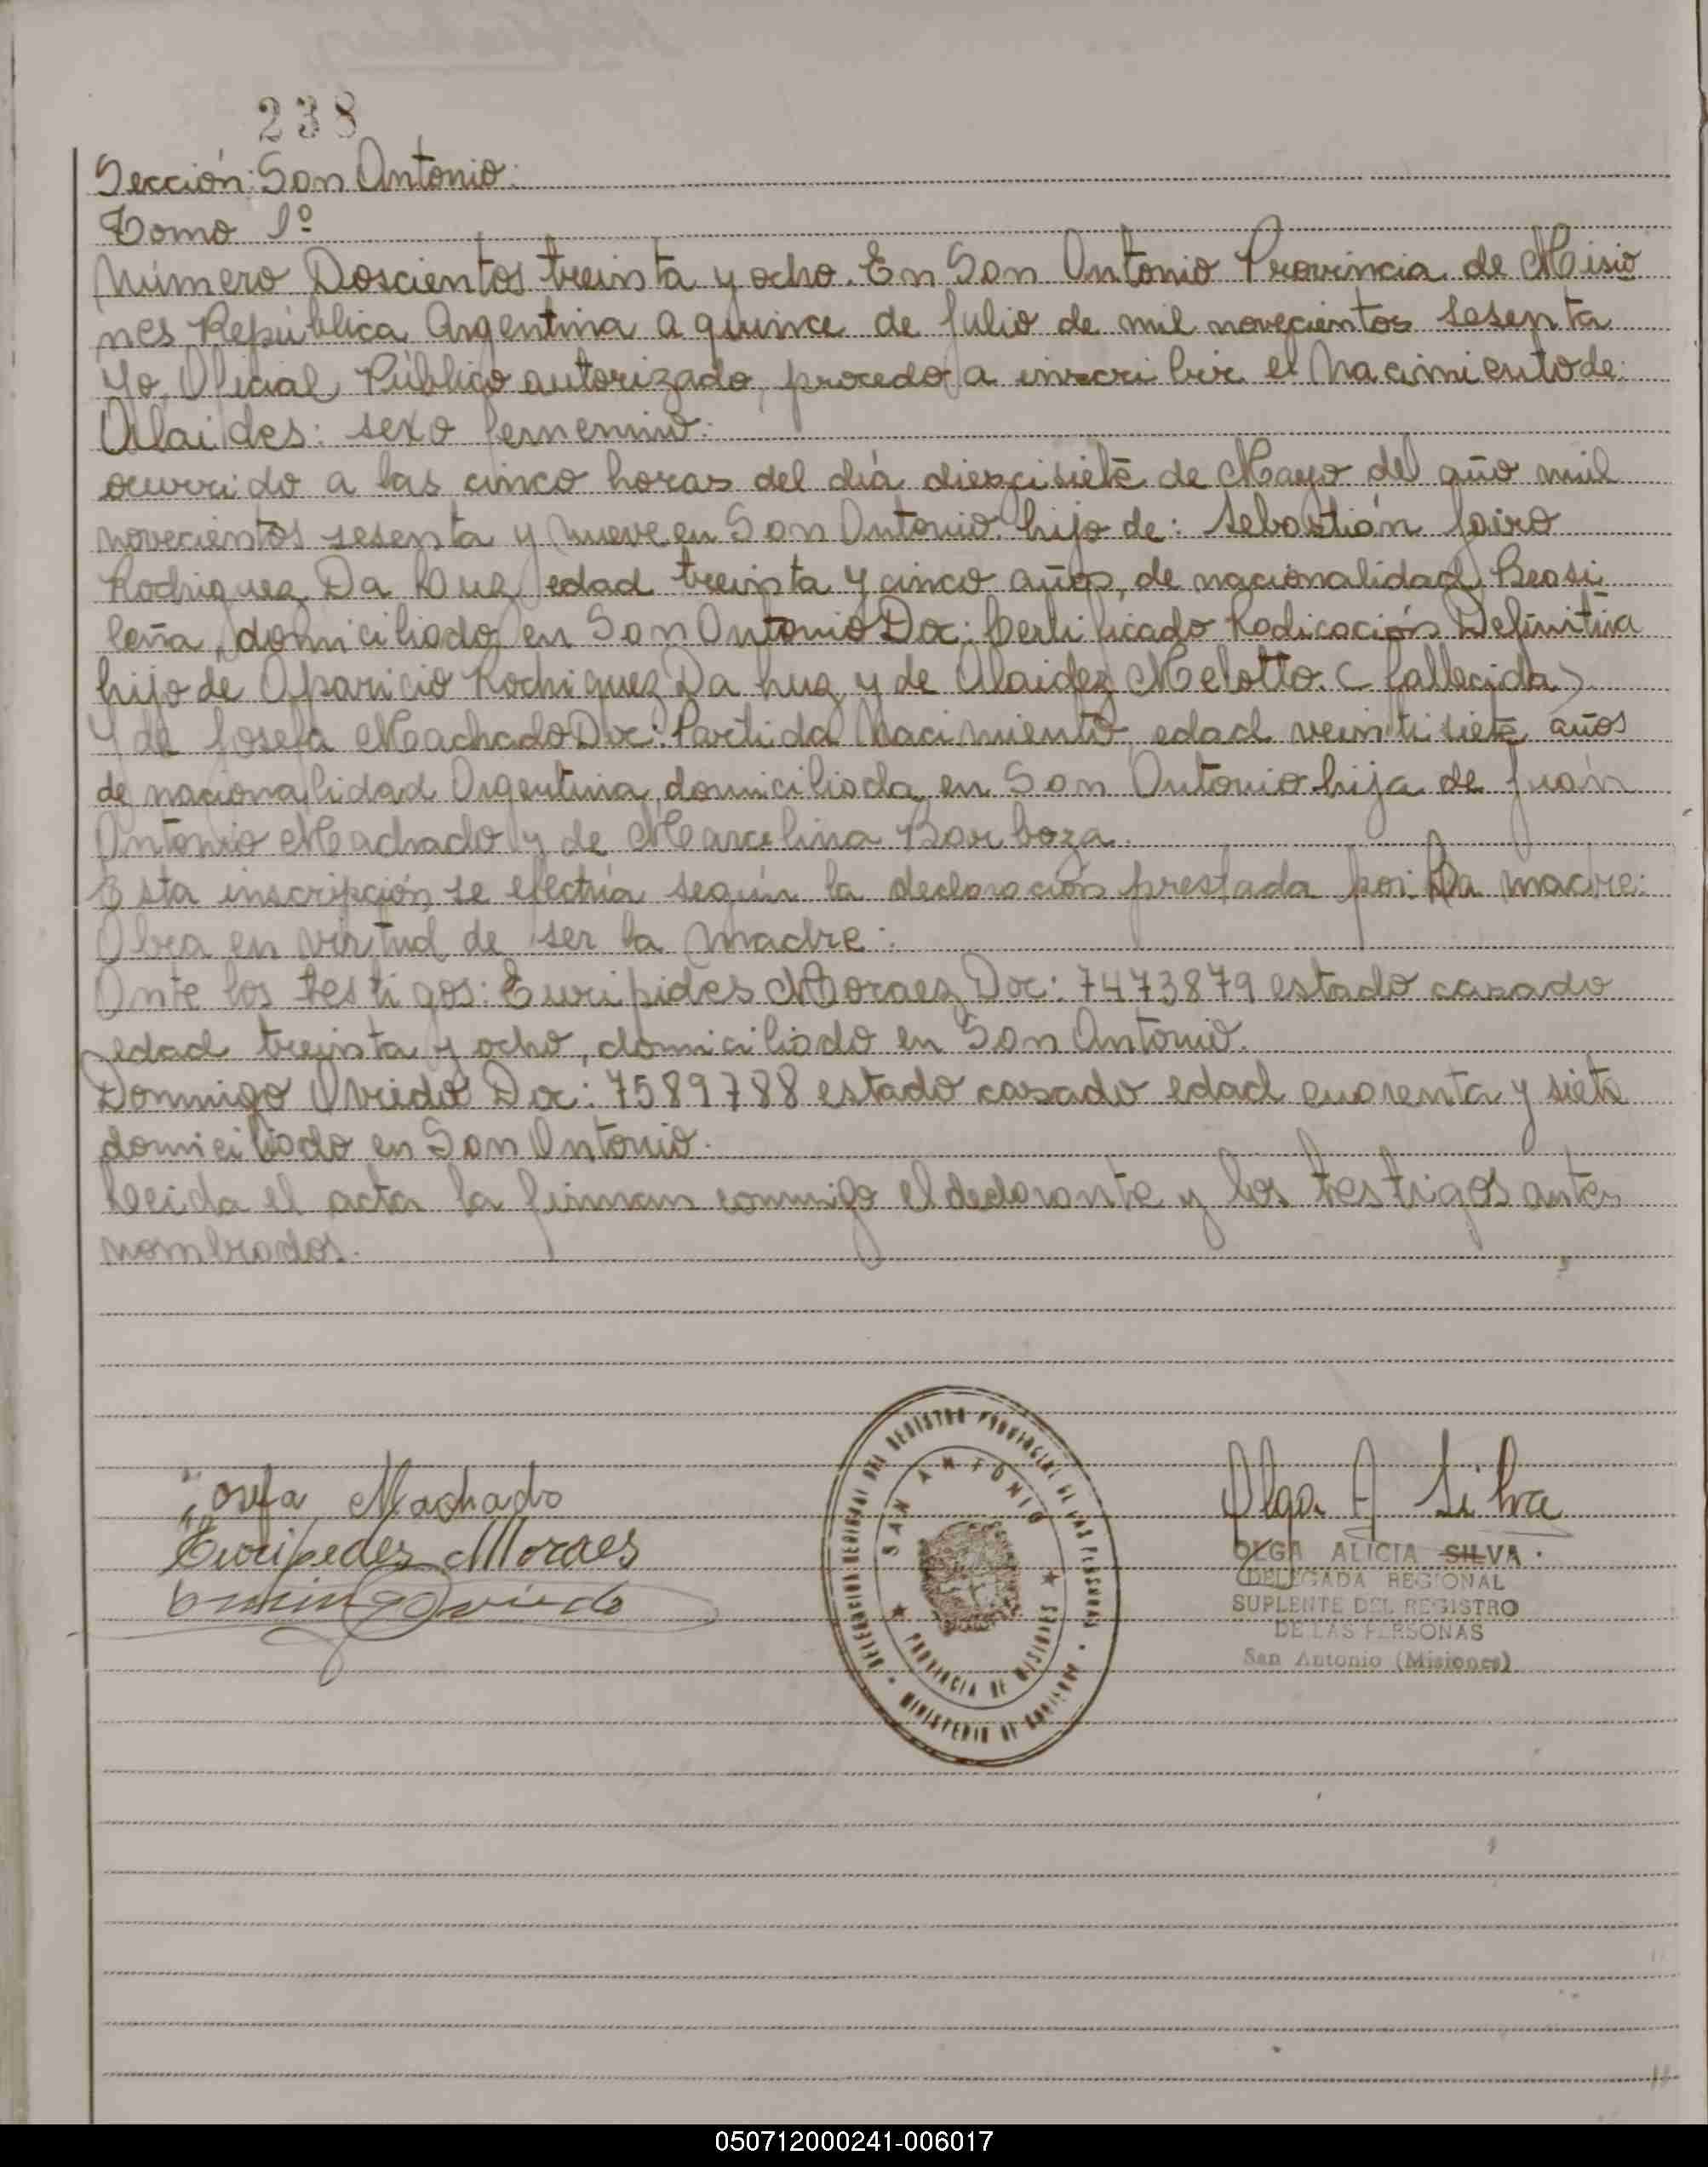 238
Sección: San Antonio:
Tomo 1º
Número Doscientos treinta y ocho. En San Antonio Provincia de Misio
nes República Argentina a quince de Julio de mil novecientos sesenta
Yo, Oficial Público autorizado, procedo a inscribir el Nacimiento de:
Alaides: sexo femenino:
ocurrido a las cinco horas del día diezcisiete de Mayo del año mil
novecientos sesenta y nueve en San Antonio. hijo de: Sebastián Jairo
Rodriguez Da Luz edad treinta y cinco años, de nacionalidad Brasi
leña, domiciliado en San Antonio Doc: Certificado Radicación Definitiva
hijo de Aparicio Rodriguez Da Luz y de Alaidez Melotto. (fallecida)
Y de Josefa Machado Doc: Partida Nacimiento, edad veintisiete años
de nacionalidad Argentina, domiciliada en San Antonio hija de Juan
Antonio Machado y de Marcelina Barboza.
Esta inscripción se efectúa según la declaración prestada por: La madre:
Obra en virtud de ser la madre:
Ante los testigos: Euripides Moraez Doc: 7473879 estado casado
edad treinta y ocho, domiciliado en San Antonio.
Domingo Oviedo Doc: 7589788 estado casado edad cuarenta y siete
domiciliado en San Antonio.
Leida el acta la firman conmigo el declarante y los testigos antes
nombrados.
Josefa Machado
Euripedes Moraes
Domingo Oviedo
DELEGACION REGIONAL DEL REGISTRO PROVINCIAL DE LAS PERSONAS
SAN ANTONIO
PROVINCIA DE MISIONES
MINISTERIO DE GOBIERNO
Olga A Silva
OLGA ALICIA SILVA
DELEGADA REGIONAL
SUPLENTE DEL REGISTRO
DE LAS PERSONAS
San Antonio (Misiones)
050712000241-006017